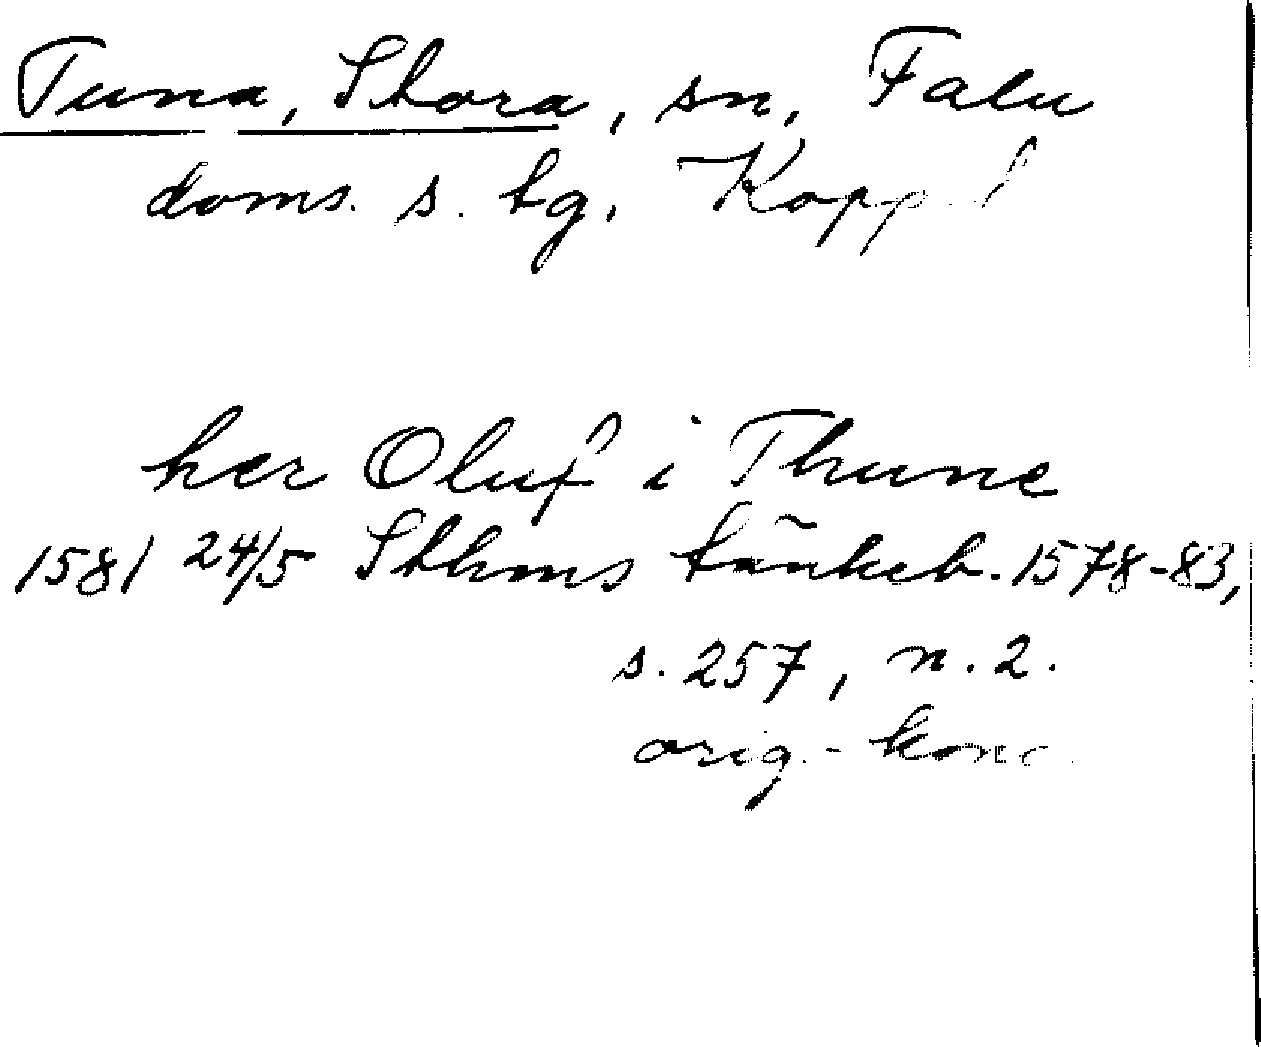 Tuna, Stora, sn, Falu
doms. s. tg. Kopp. l
her Oluf i Thune
1581 24/5 Sthms tänkeb. 1578-83,
s. 257, n. 2.
orig.-konc